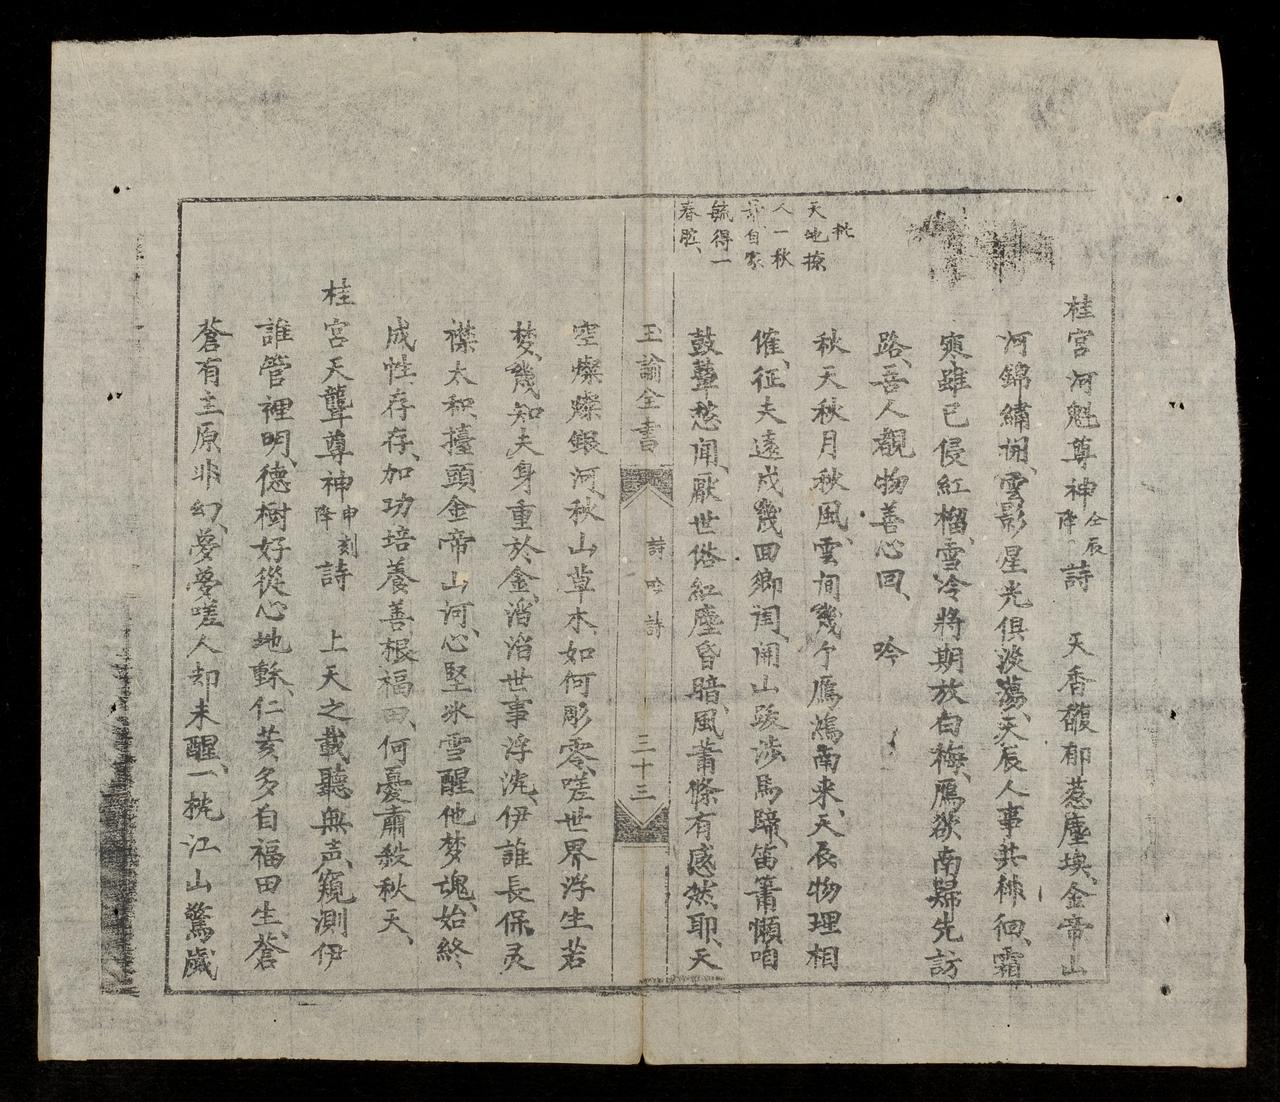 桄
天地撩
人一秋
自家
毓得一
春腔
桂宮河魁尊神仝辰降詩 天香馥郁惹塵埃、金帝山
河錦繡開、雲影星光俱淡蕩、天辰人事共徘徊、霜
寒雖已侵紅榴、雪冷將期放白梅、鴈欲南歸先訪
路、吾人觀物善心回、 吟
秋天秋月秋風、雲間幾个鴈鴻南來、天辰物理相
催、征夫遠戍幾回鄉閨、開山跋涉馬蹄、笛簫懶咱
鼓鼙愁聞、厭世俗紅塵昏暗、風蕭條有感然耶、天
玉諭全書 詩吟詩 三十三
空燦燦銀河、秋山草木如何彫零、嗟世界浮生若
梦、幾知夫身重於金、滔滔世事浮沈、伊誰長保灵
襟、太和擡頭金帝山河、心堅冰雪醒他梦魂、始終
成性存存、加功培養善根福田、何憂肅殺秋天、
桂宮天聾尊神申刻降詩 上天之載聽無声、窺測伊
誰管裡明、德樹好從心地種、仁荄多自福田生、蒼
蒼有主原非幻、夢夢嗟人却未醒、一桄江山驚歲